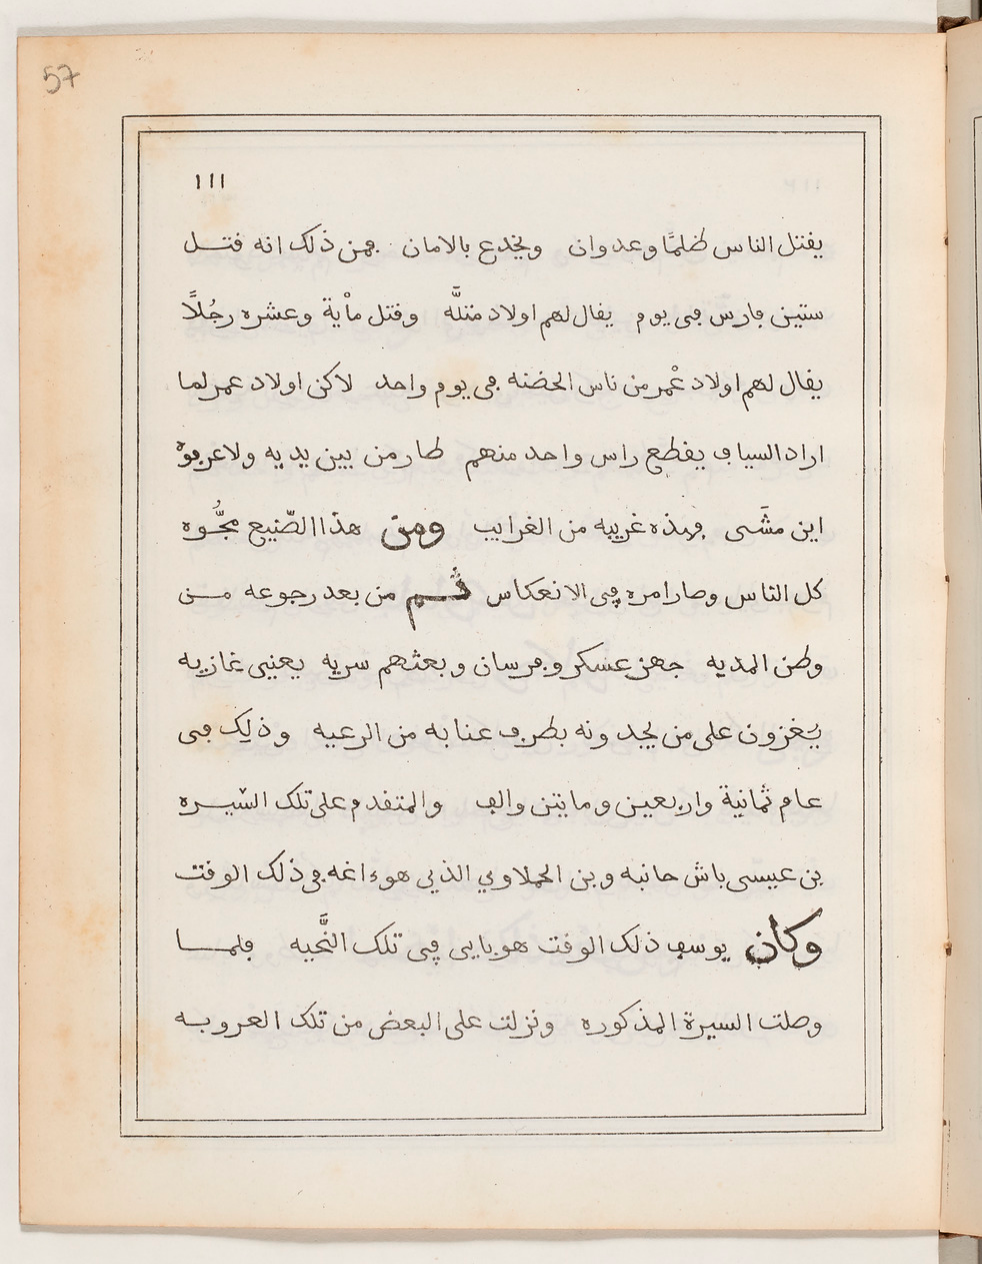 57
١١١
يقتل الناس ظلمًا وعدوان ويخدع بالامان فمن ذلك انه قتـل
ستين فارس في يوم يقال لهم اولاد متلَّه وقتل مأية وعشره رجُلاً
يقال لهم اولاد عْمر من ناس الحضنه في يوم واحد لاكن اولاد عمر لما
اراد السياف يقطع راس واحد منهم طار من بين يديه ولا عرفوه
اين مشَى فهذه غريبه من الغرايب ومن هذا الصّنيع مجُّوه
كل الناس وصار امره في الانعكاس ثـم من بعد رجوعه مـن
وطن المديه جهز عسكر وفرسان وبعثهم سريه يعني غازيه
يغزون على من يجدونه بطرف عنابه من الرعيه وذلِك في
عام ثمانية واربعين ومايتن والف والمتقدم على تلك السّيـره
بن عيسى باش حانبه وبن الحملاوي الذي هو ءاغه في ذلك الوقت
وكان يوسف ذلك الوقت هو بايي في تلك النَّحيه فلمـا
وصلت السيرة المذكوره ونزلت على البعض من تلك العروبـه